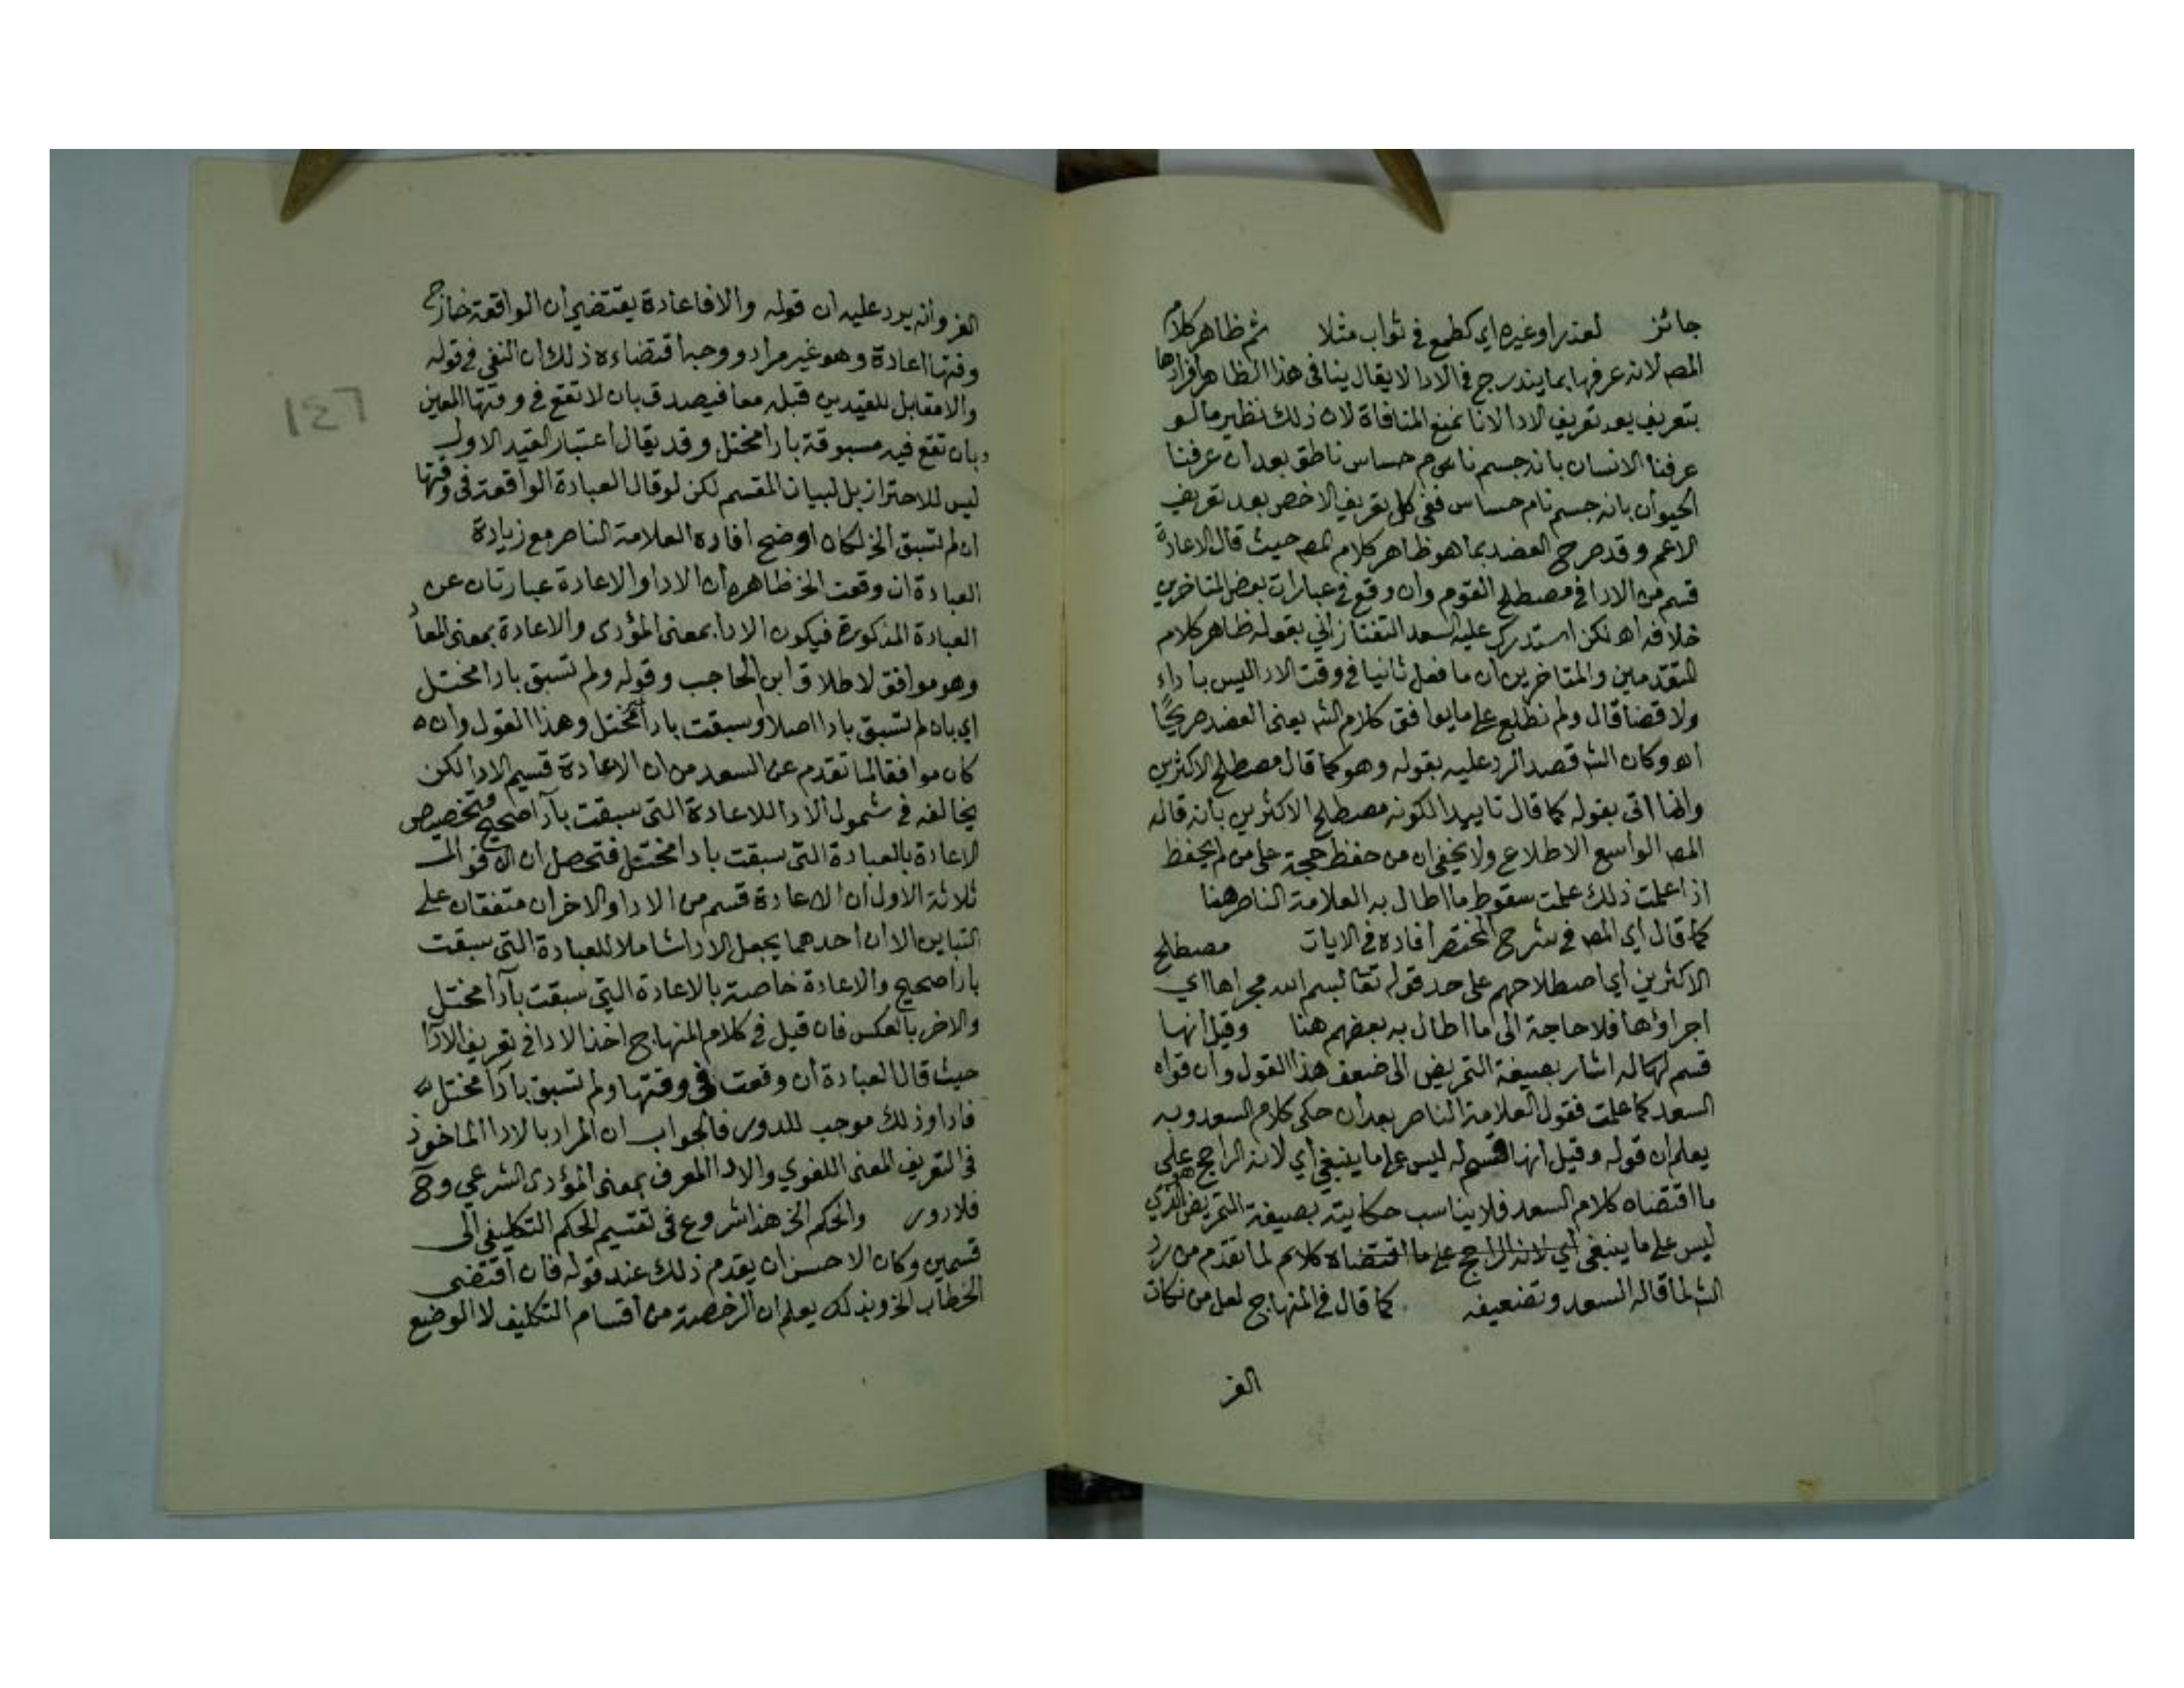 جائز لعذر او غيره اي كطمع في ثواب مثلا ثم ظاهر كلام
المصـ لانه عرفها بما يندرج في الادا لا يقال ينافي هذا الظاهر افرادها
بتعريف بعد تعريف الادا لانا نمنع المنافاة لان ذلك نظير ما لو
عرفنا الانسان بانه جسم نام حساس ناطق بعد ان عرفنا
الحيوان بانه جسم نام حساس ففي كل تعريف الاخص بعد تعريف
الاعم وقد صرح العضد بما هو ظاهر كلام المصـ حيث قال الاعادة
قسم من الادا في مصطلح القوم وان وقع في عبارات بعض المتاخرين
خلافه اهـ لكن استدرك عليه السعد التفتازاني بقوله ظاهر كلام
المتقدمين والمتاخرين ان ما فعل ثانيا في وقت الادا ليس باداء
ولا قضا قال ولم نطلع على ما يوافق كلام الشـ يعني العضد صريحًا
اهـ وكان الشـ قصد الرد عليه بقوله وهو كما قال مصطلح الاكثرين
وانما اتى بقوله كما قال تاييدا لكونه مصطلح الاكثرين بانه قاله
المصـ الواسع الاطلاع ولا يخفى ان من حفظ حجة على من لم يحفظ
اذا علمت ذلك علمت سقوط ما اطال به العلامة الناصر هنا
كما قال اي المصـ في شرح المختصر افاده في الايات مصطلح
الاكثرين اي اصطلاحهم على حد قوله تعا بسم الله مجراها اي
اجراؤها فلا حاجة الى ما اطال به بعضهم هنا وقيل انها
قسم لها له اشار بصيغة التمريض الى ضعف هذا القول وان قواه
السعد كما علمت فقول العلامة الناصر بعد ان حكى كلام السعد وبه
يعلم ان قوله وقيل انها قسم له ليس على ما ينبغي اي لانه الراجح على
ما اقتضاه كلام السعد فلا يناسب حكايته بصيغة التمريض هو الذي
ليس على ما ينبغي اي لانه الراجح على ما اقتضاه كلام لما تقدم من رد
الشـ لما قاله السعد وتضعيفه كما قال في المنهاج لعل من نكات
الغز
الغز وانه يرد عليه ان قوله والا فاعادة يقتضي ان الواقعة خارج
وقتها اعادة وهو غير مراد ووجه اقتضاءه ذلك ان النفي في قوله
والا مقابل للقيدين قبله معا فيصدق بان لا تقع في وقتها المعين
وبان تقع فيه مسبوقة بادا مختل وقد يقال اعتبار القيد الاول
ليس للاحتراز بل لبيان المقسم لكن لو قال العبادة الواقعة في وقتها
ان لم تسبق الخ لكان اوضح افاده العلامة الناصر مع زيادة
العبادة ان وقعت الخ ظاهره ان الادا والاعادة عبارتان عن
العبادة المذكورة فيكون الادا بمعنى المؤدى والاعادة بمعنى المعاد
وهو موافق لاطلاق ابن الحاجب وقوله ولم تسبق بادا مختل
اي بان لم تسبق بادا اصلا او سبقت بادا غير مختل وهذا القول وان
كان موافقا لما تقدم عن السعد من ان الاعادة قسيم الادا لكن
يخالفه في شمول الادا للاعادة التي سبقت بادا صحيح وتخصيص
الاعادة بالعبادة التي سبقت بادا مختل فتحصل ان الاقوال
ثلاثة الاول ان الاعادة قسم من الادا والاخران متفقان على
التباين الا ان احدهما يجعل الادا شاملا للعبادة التي سبقت
بادا صحيح والاعادة خاصة بالاعادة التي سبقت بادا مختل
والاخر بالعكس فان قيل في كلام المنهاج اخذ الادا في تعريف الادا
حيث قال العبادة ان وقعت في وقتها ولم تسبق بادا مختل
فادا وذلك موجب للدور فالجواب ان المراد بالادا الماخوذ
في التعريف المعنى اللغوي والادا المعرف بمعنى المؤدى الشرعي وح
فلا دور والحكم الخ هذا شروع في تقسيم الحكم التكليفي الى
قسمين وكان الاحسن ان يقدم ذلك عند قوله فان اقتضى
الخطاب الخ وبذلك يعلم ان الرخصة من اقسام التكليف لا الوضع
١٤٦